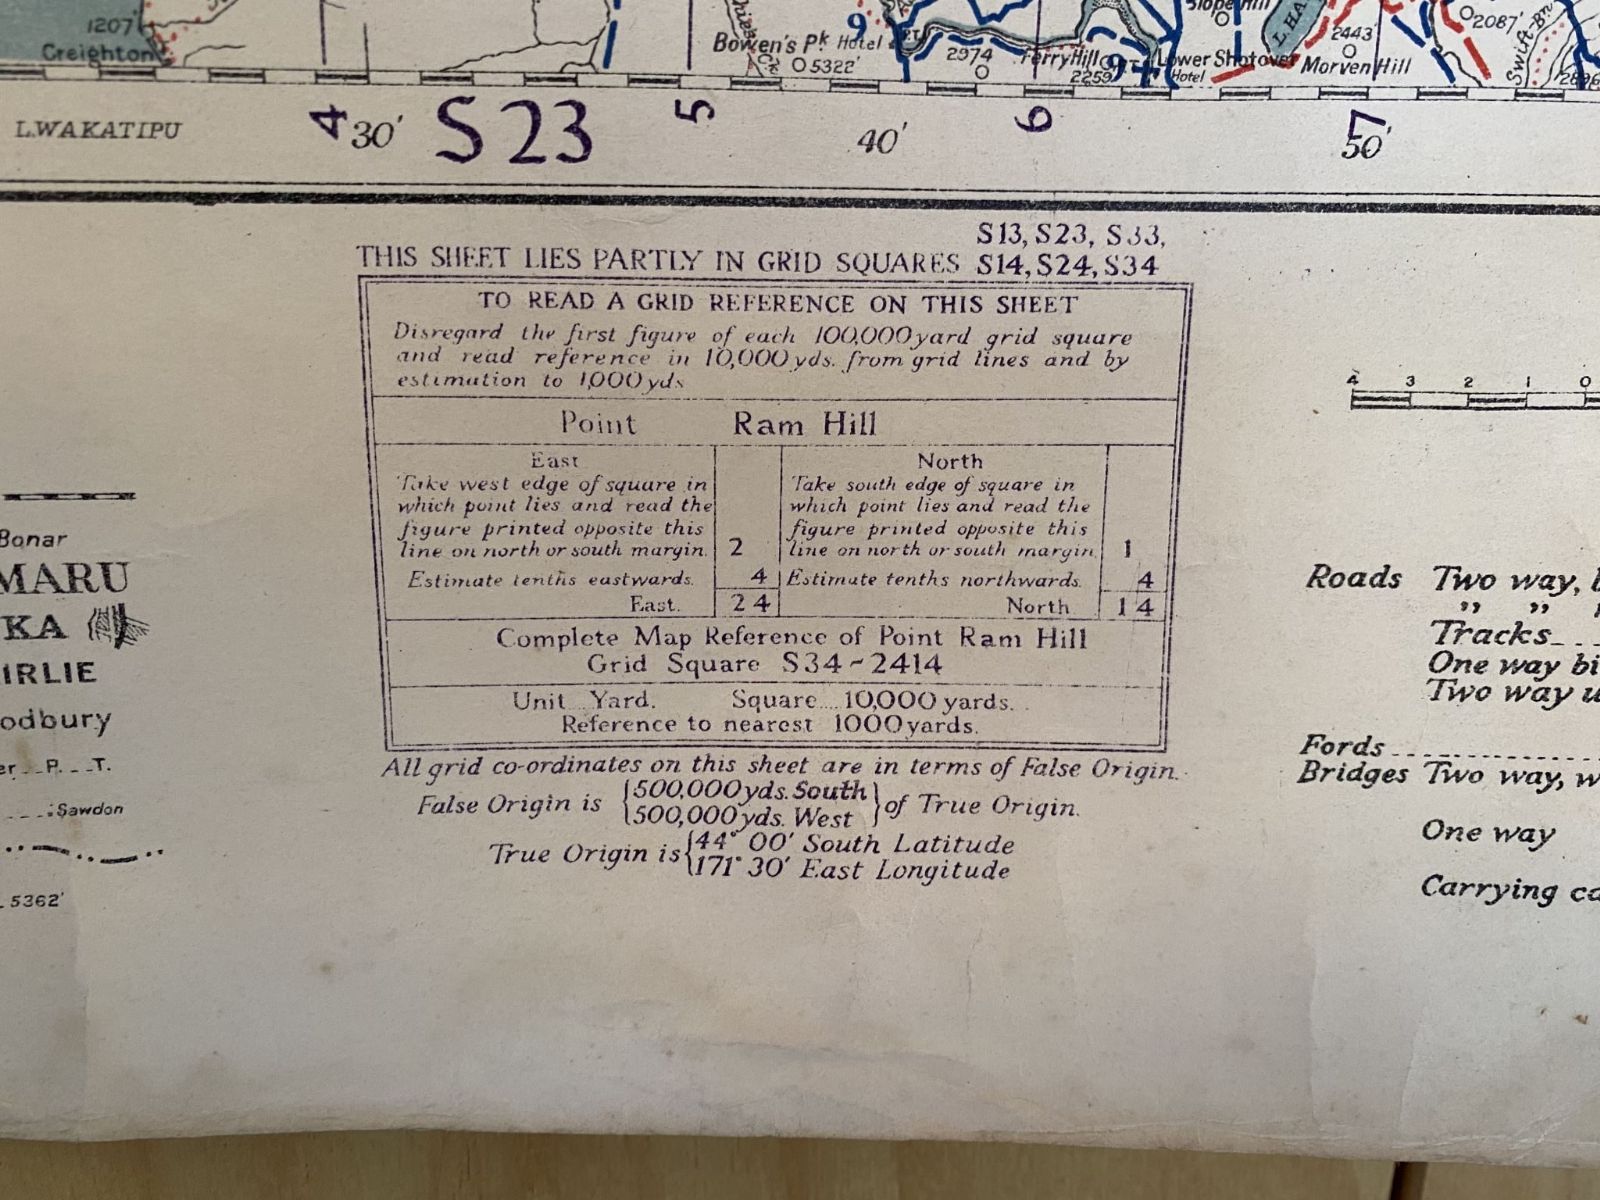 1207'
Creighton
Bowen's Pk
Hotel
5322'
9
2974
Ferry Hill
2259
94
Slope Hill
Lower Shotover
Hotel
L. HA
2443
Morven Hill
2087'
Swift Bn.
2896
L.WAKATIPU
4
30'
S 23
5
40'
6
7
50'
S13, S23, S33,
THIS SHEET LIES PARTLY IN GRID SQUARES S14, S24, S34
TO READ A GRID REFERENCE ON THIS SHEET
Disregard the first figure of each 100,000 yard grid square
and read reference in 10,000 yds. from grid lines and by
estimation to 1,000 yds
Point Ram Hill
East
Take west edge of square in
which point lies and read the
figure printed opposite this
line on north or south margin. 2
Estimate tenths eastwards. 4
East. 24
North
Take south edge of square in
which point lies and read the
figure printed opposite this
line on north or south margin. 1
Estimate tenths northwards. 4
North 14
Complete Map Reference of Point Ram Hill
Grid Square S34-2414
Unit Yard. Square 10,000 yards.
Reference to nearest 1000 yards.
All grid co-ordinates on this sheet are in terms of False Origin.
False Origin is {500,000 yds. South
500,000 yds. West} of True Origin.
True Origin is {44° 00' South Latitude
171° 30' East Longitude
Bonar
MARU
KA
IRLIE
odbury
er P. T.
Sawdon
5362'
4 3 2 1 0
Roads Two way, b
" "
Tracks
One way bi
Two way u
Fords
Bridges Two way, w
One way
Carrying ca